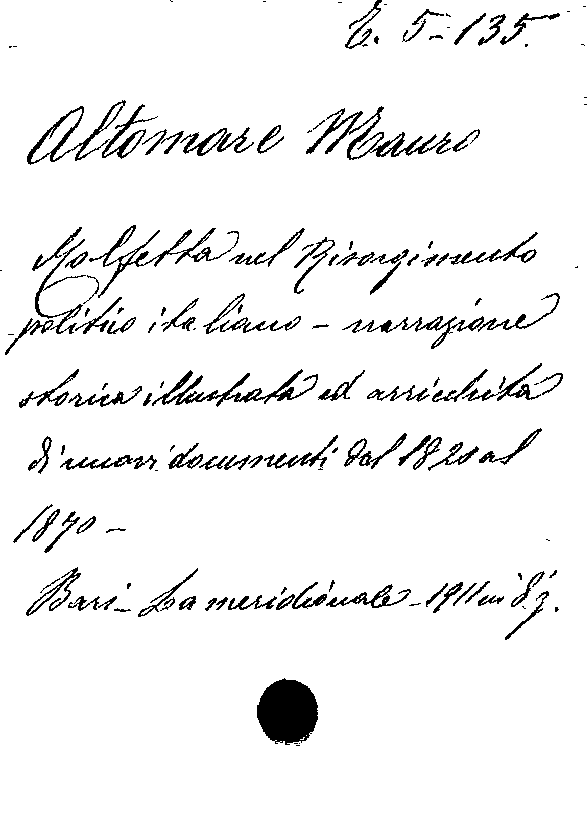 E. 5-135.
Altomare Mauro
Molfetta nel Risorgimento
politico italiano – narrazione
storica illustrata ed arricchita
di nuovi documenti dal 1820 al
1870 –
Bari – La meridionale – 1911 in 8°